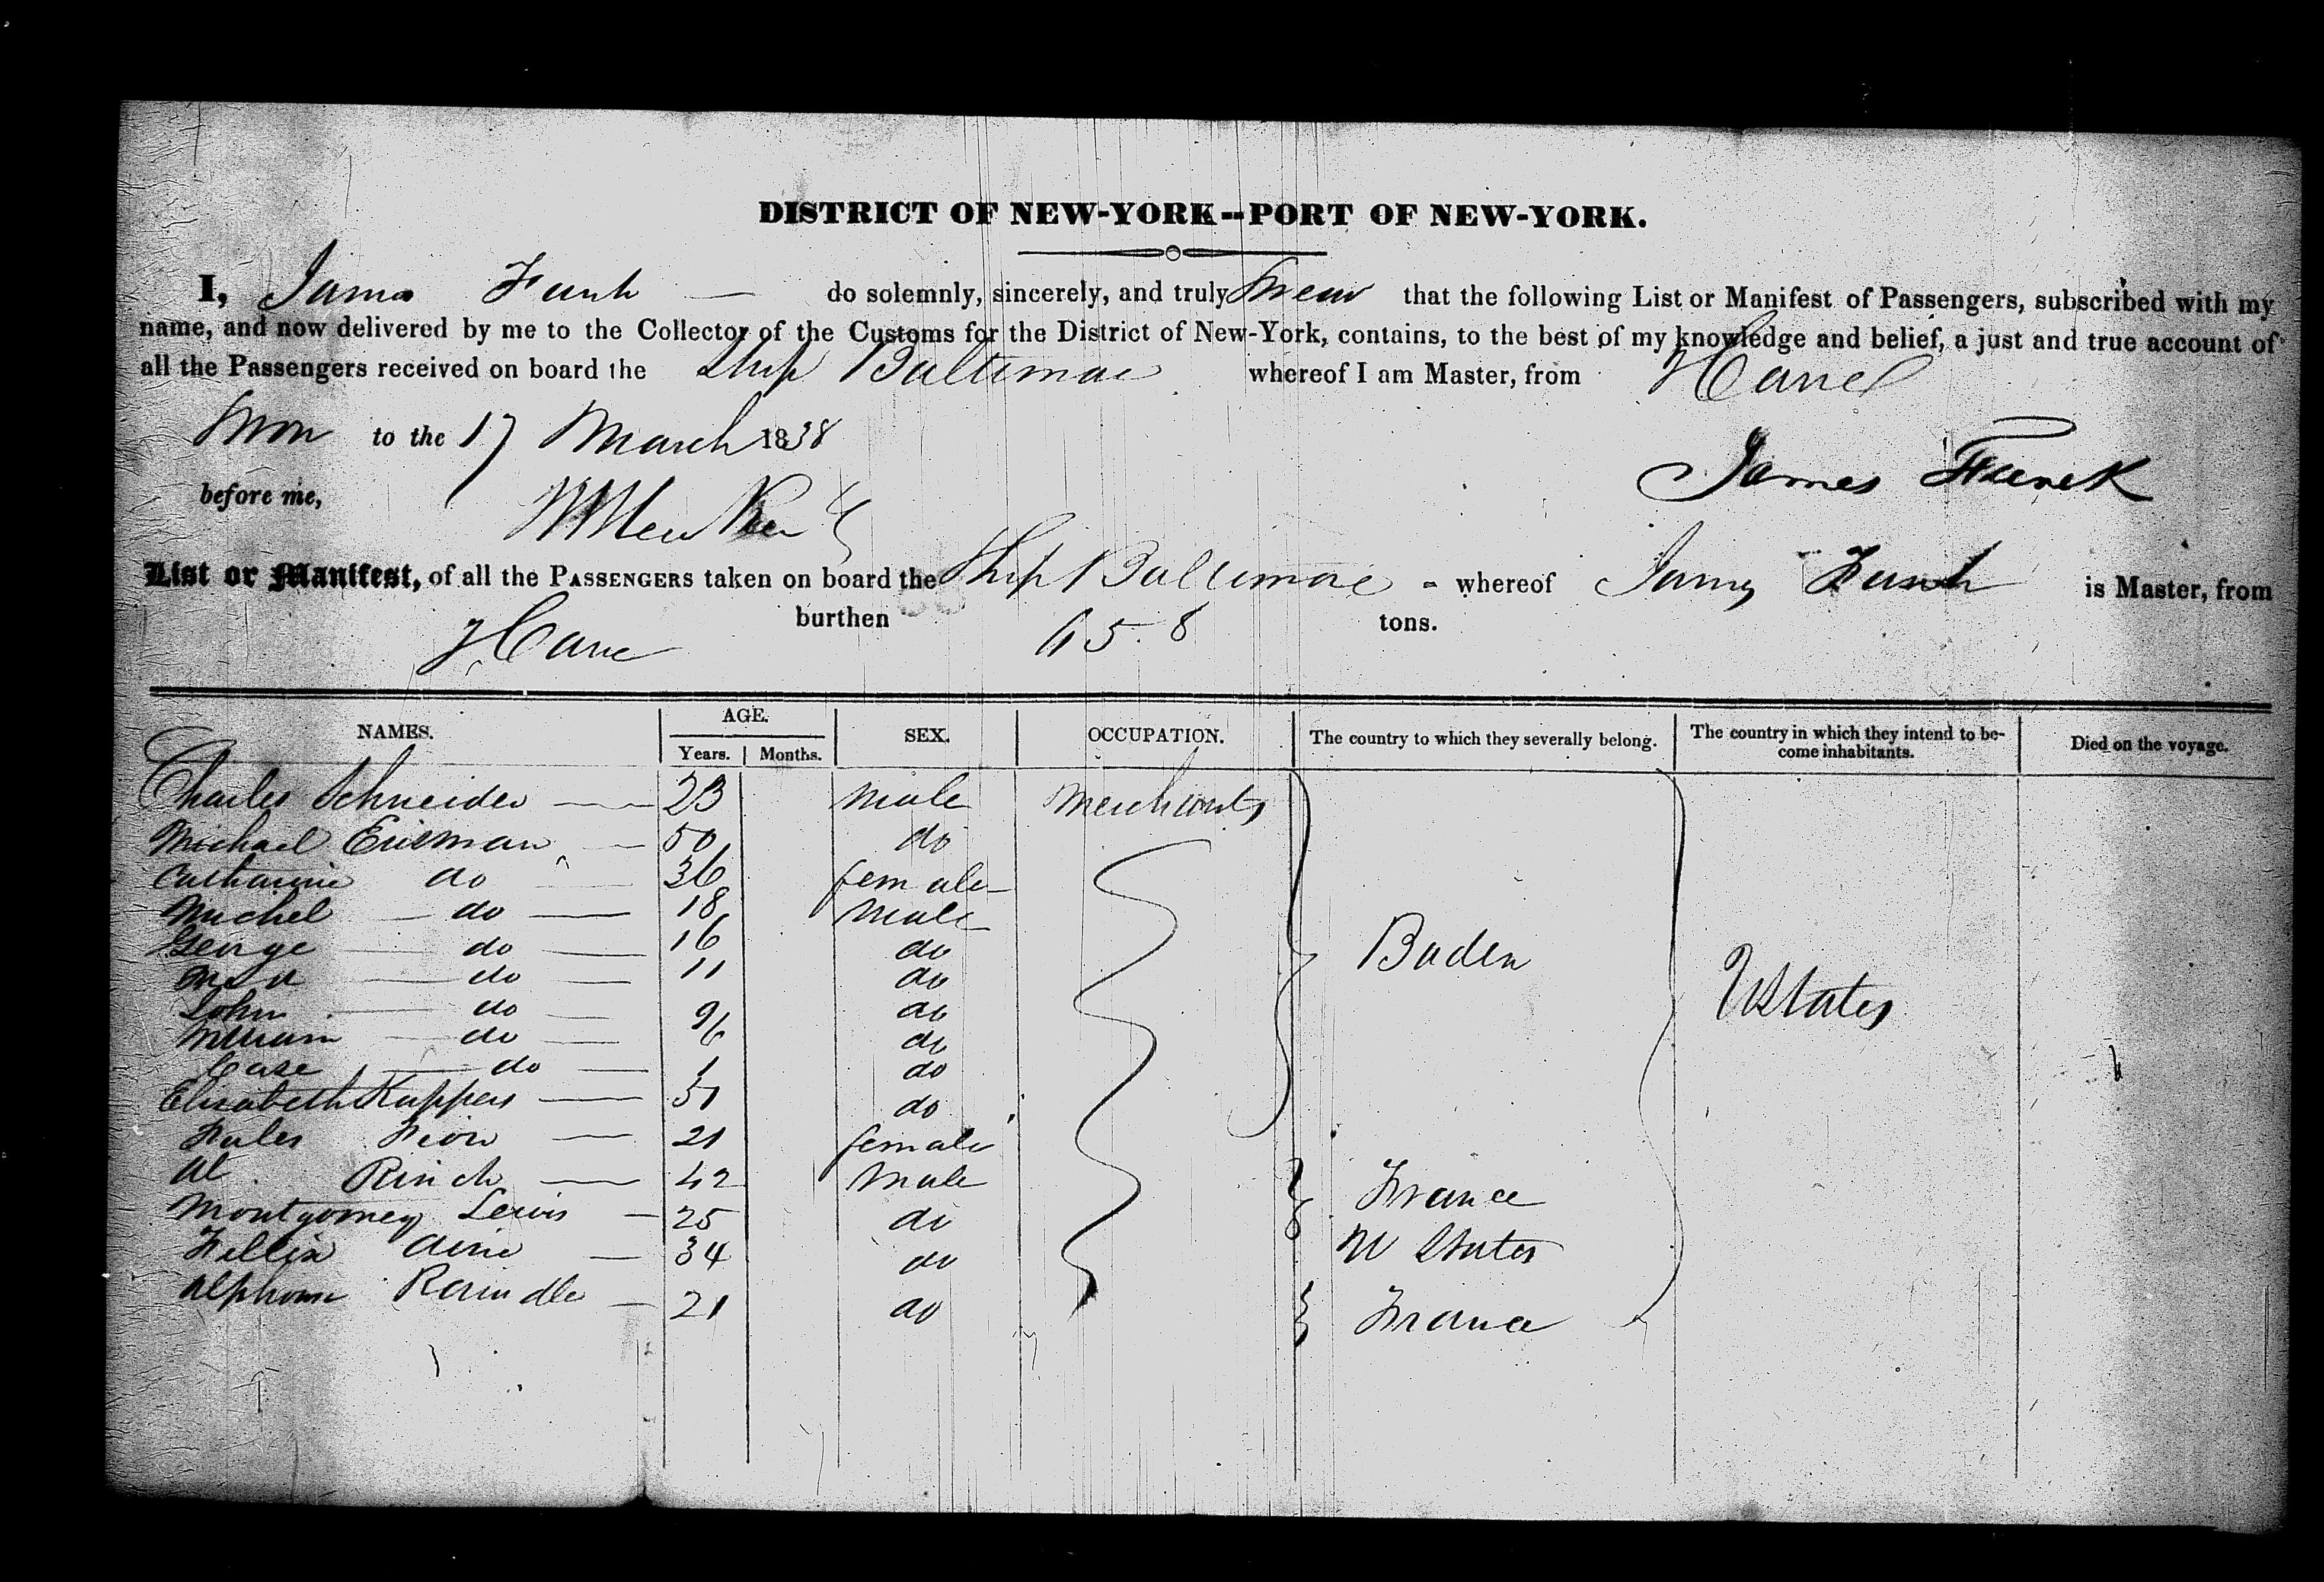 DISTRICT OF NEW-YORK--PORT OF NEW-YORK.
I, James Funk — do solemnly, sincerely, and truly Swear that the following List or Manifest of Passengers, subscribed with my
name, and now delivered by me to the Collector of the Customs for the District of New-York, contains, to the best of my knowledge and belief, a just and true account of
all the Passengers received on board the Ship Baltimore whereof I am Master, from Havre
Sworn to the 17 March 1838
James Funck
before me,
List or Manifest, of all the PASSENGERS taken on board the Ship Baltimore - whereof James Funk is Master, from
Havre burthen 658 tons.
NAMES. AGE. SEX. OCCUPATION. The country to which they severally belong. The country in which they intend to be- Died on the voyage.
Years. Months. come inhabitants.
Charles Schneider — 23 male merchants
Michael — 50 do
Catharine do — 36 female
Michel — do — 18 male
George — do — 16 do
— do — 11 do Baden
John — do — 9 do UStates
William — do — 6 do
do — 1 do
Elizabeth Kuppers — 51 do
Jules — 21 female
Rinch — 42 male France
Montgomery Lewis — 25 do
— 34 do U States
Alphonse — 21 do France